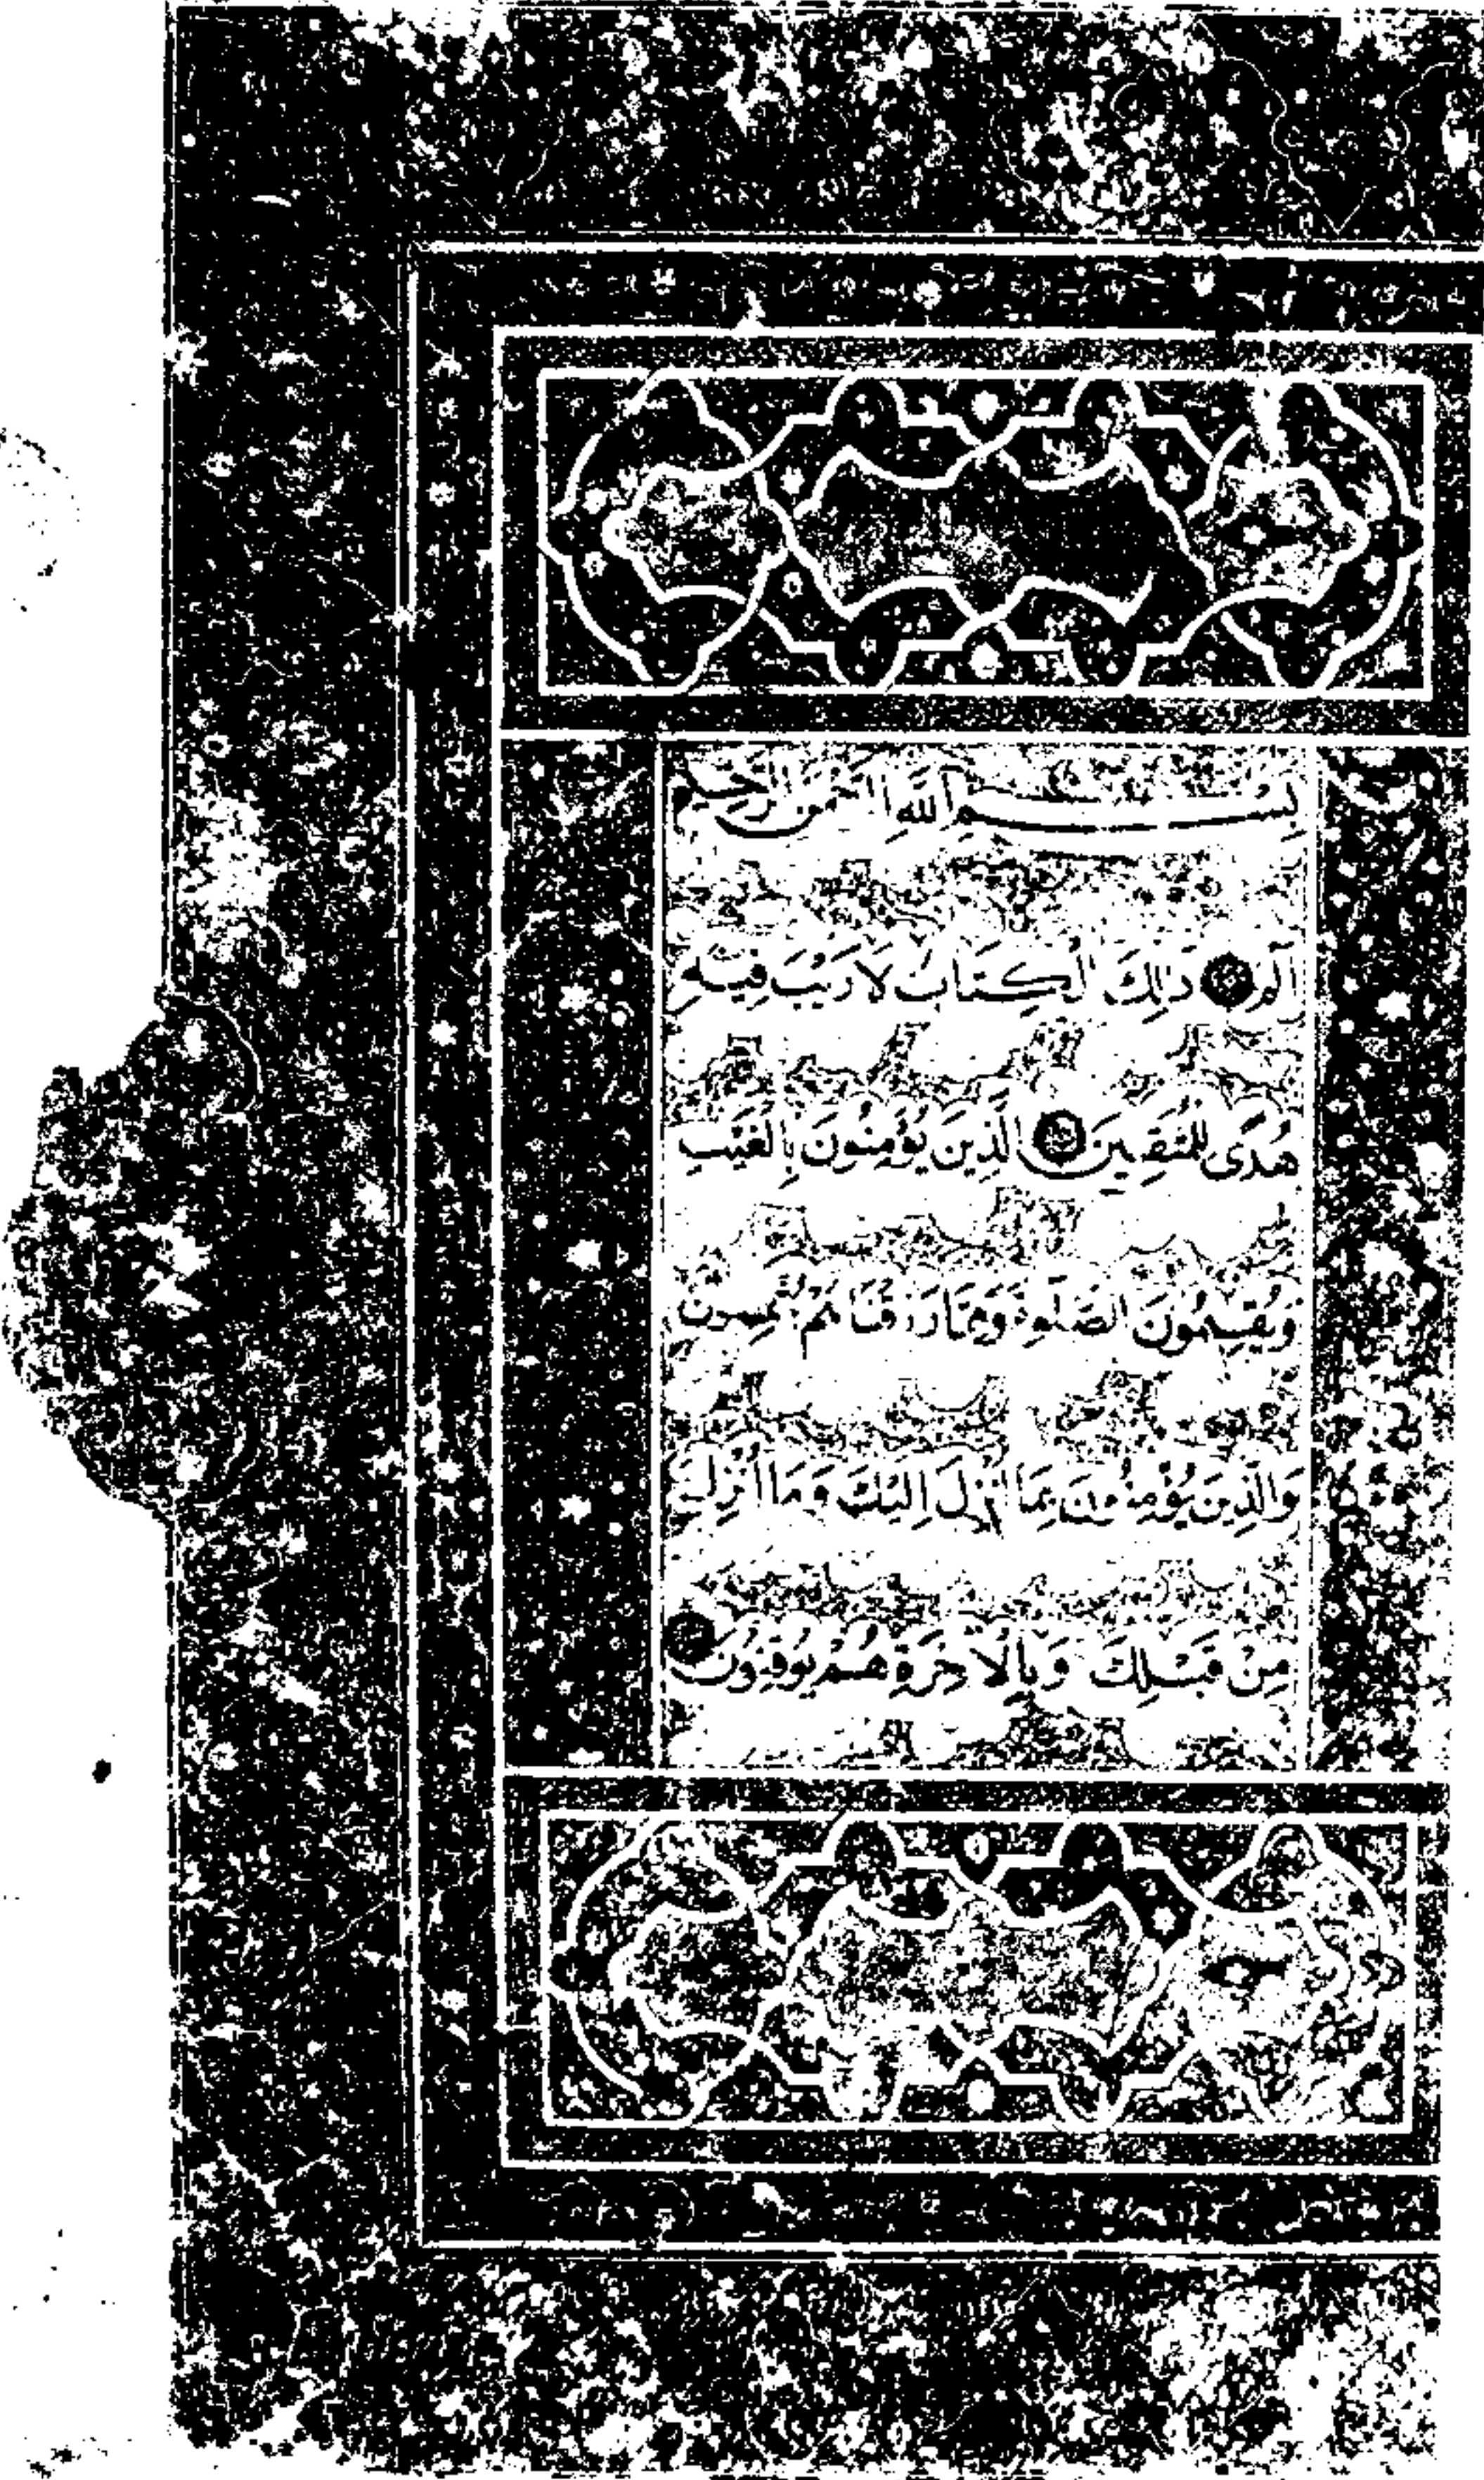 بِسْمِ اللَّهِ الرَّحْمَنِ الرَّحِيمِ
الم ذَلِكَ الْكِتَابُ لَا رَيْبَ فِيهِ
هُدًى لِلْمُتَّقِينَ الَّذِينَ يُؤْمِنُونَ بِالْغَيْبِ
وَيُقِيمُونَ الصَّلَوةَ وَمِمَّا رَزَقْنَاهُمْ يُنْفِقُونَ
وَالَّذِينَ يُؤْمِنُونَ بِمَا أُنْزِلَ إِلَيْكَ وَمَا أُنْزِلَ
مِنْ قَبْلِكَ وَبِالْآخِرَةِ هُمْ يُوقِنُونَ